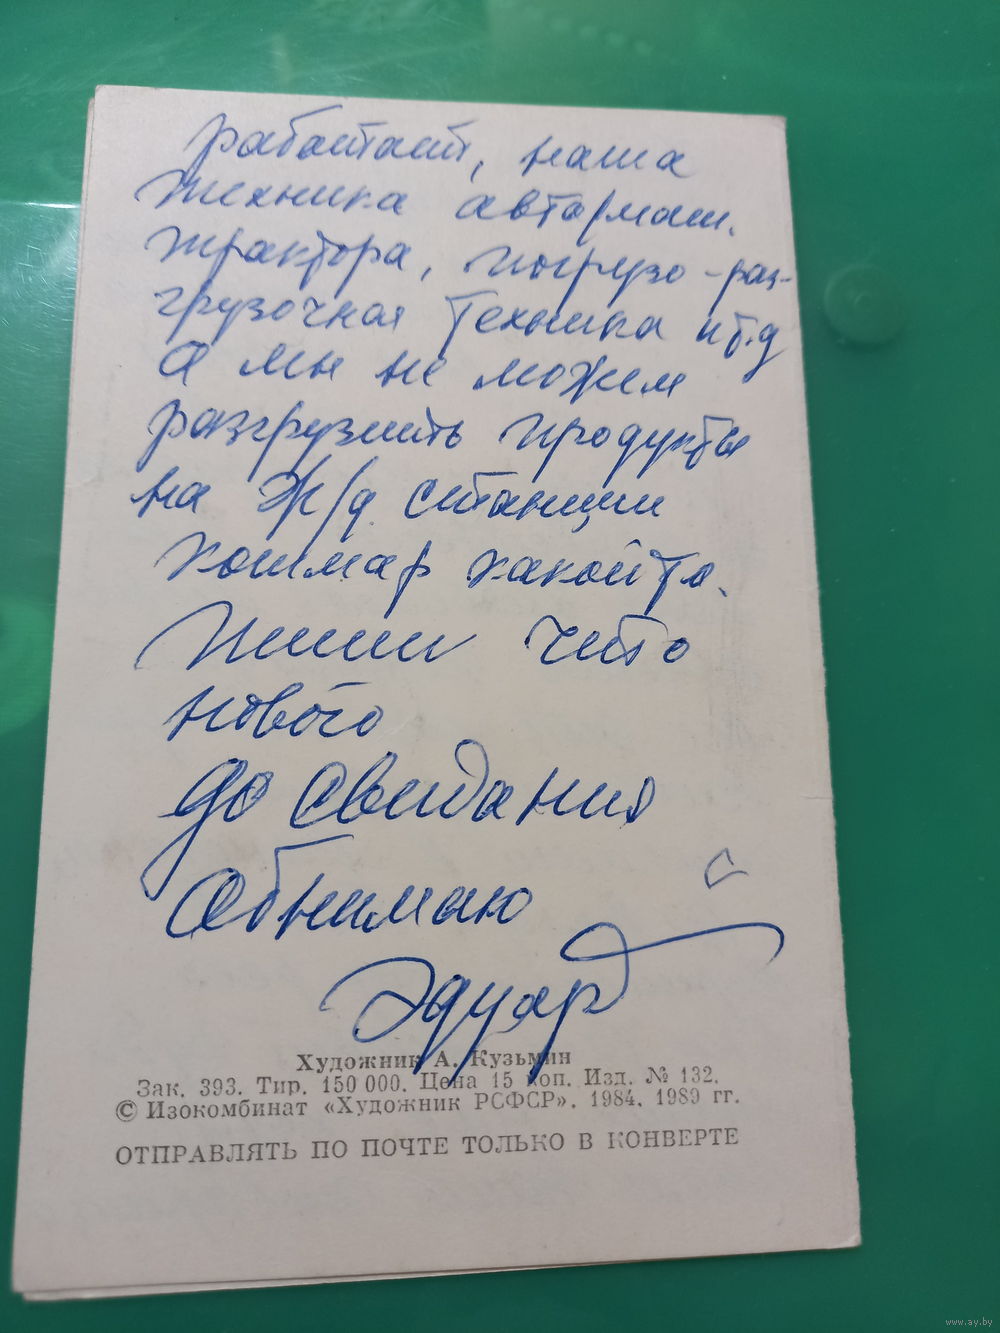 работает, наша
техника автормаш.
трактора, погрузо-раз-
грузочная техника ит.д
а мы не можем
разгрузить продукты
на ж/д станции
кошмар какойто.
пиши что
нового
до свидания
обнимаю
Эдуард
Художник А. Кузьмин
Зак. 393. Тир. 150 000. Цена 15 коп. Изд. № 132.
© Изокомбинат «Художник РСФСР». 1984. 1989 гг.
ОТПРАВЛЯТЬ ПО ПОЧТЕ ТОЛЬКО В КОНВЕРТЕ
www.ay.by